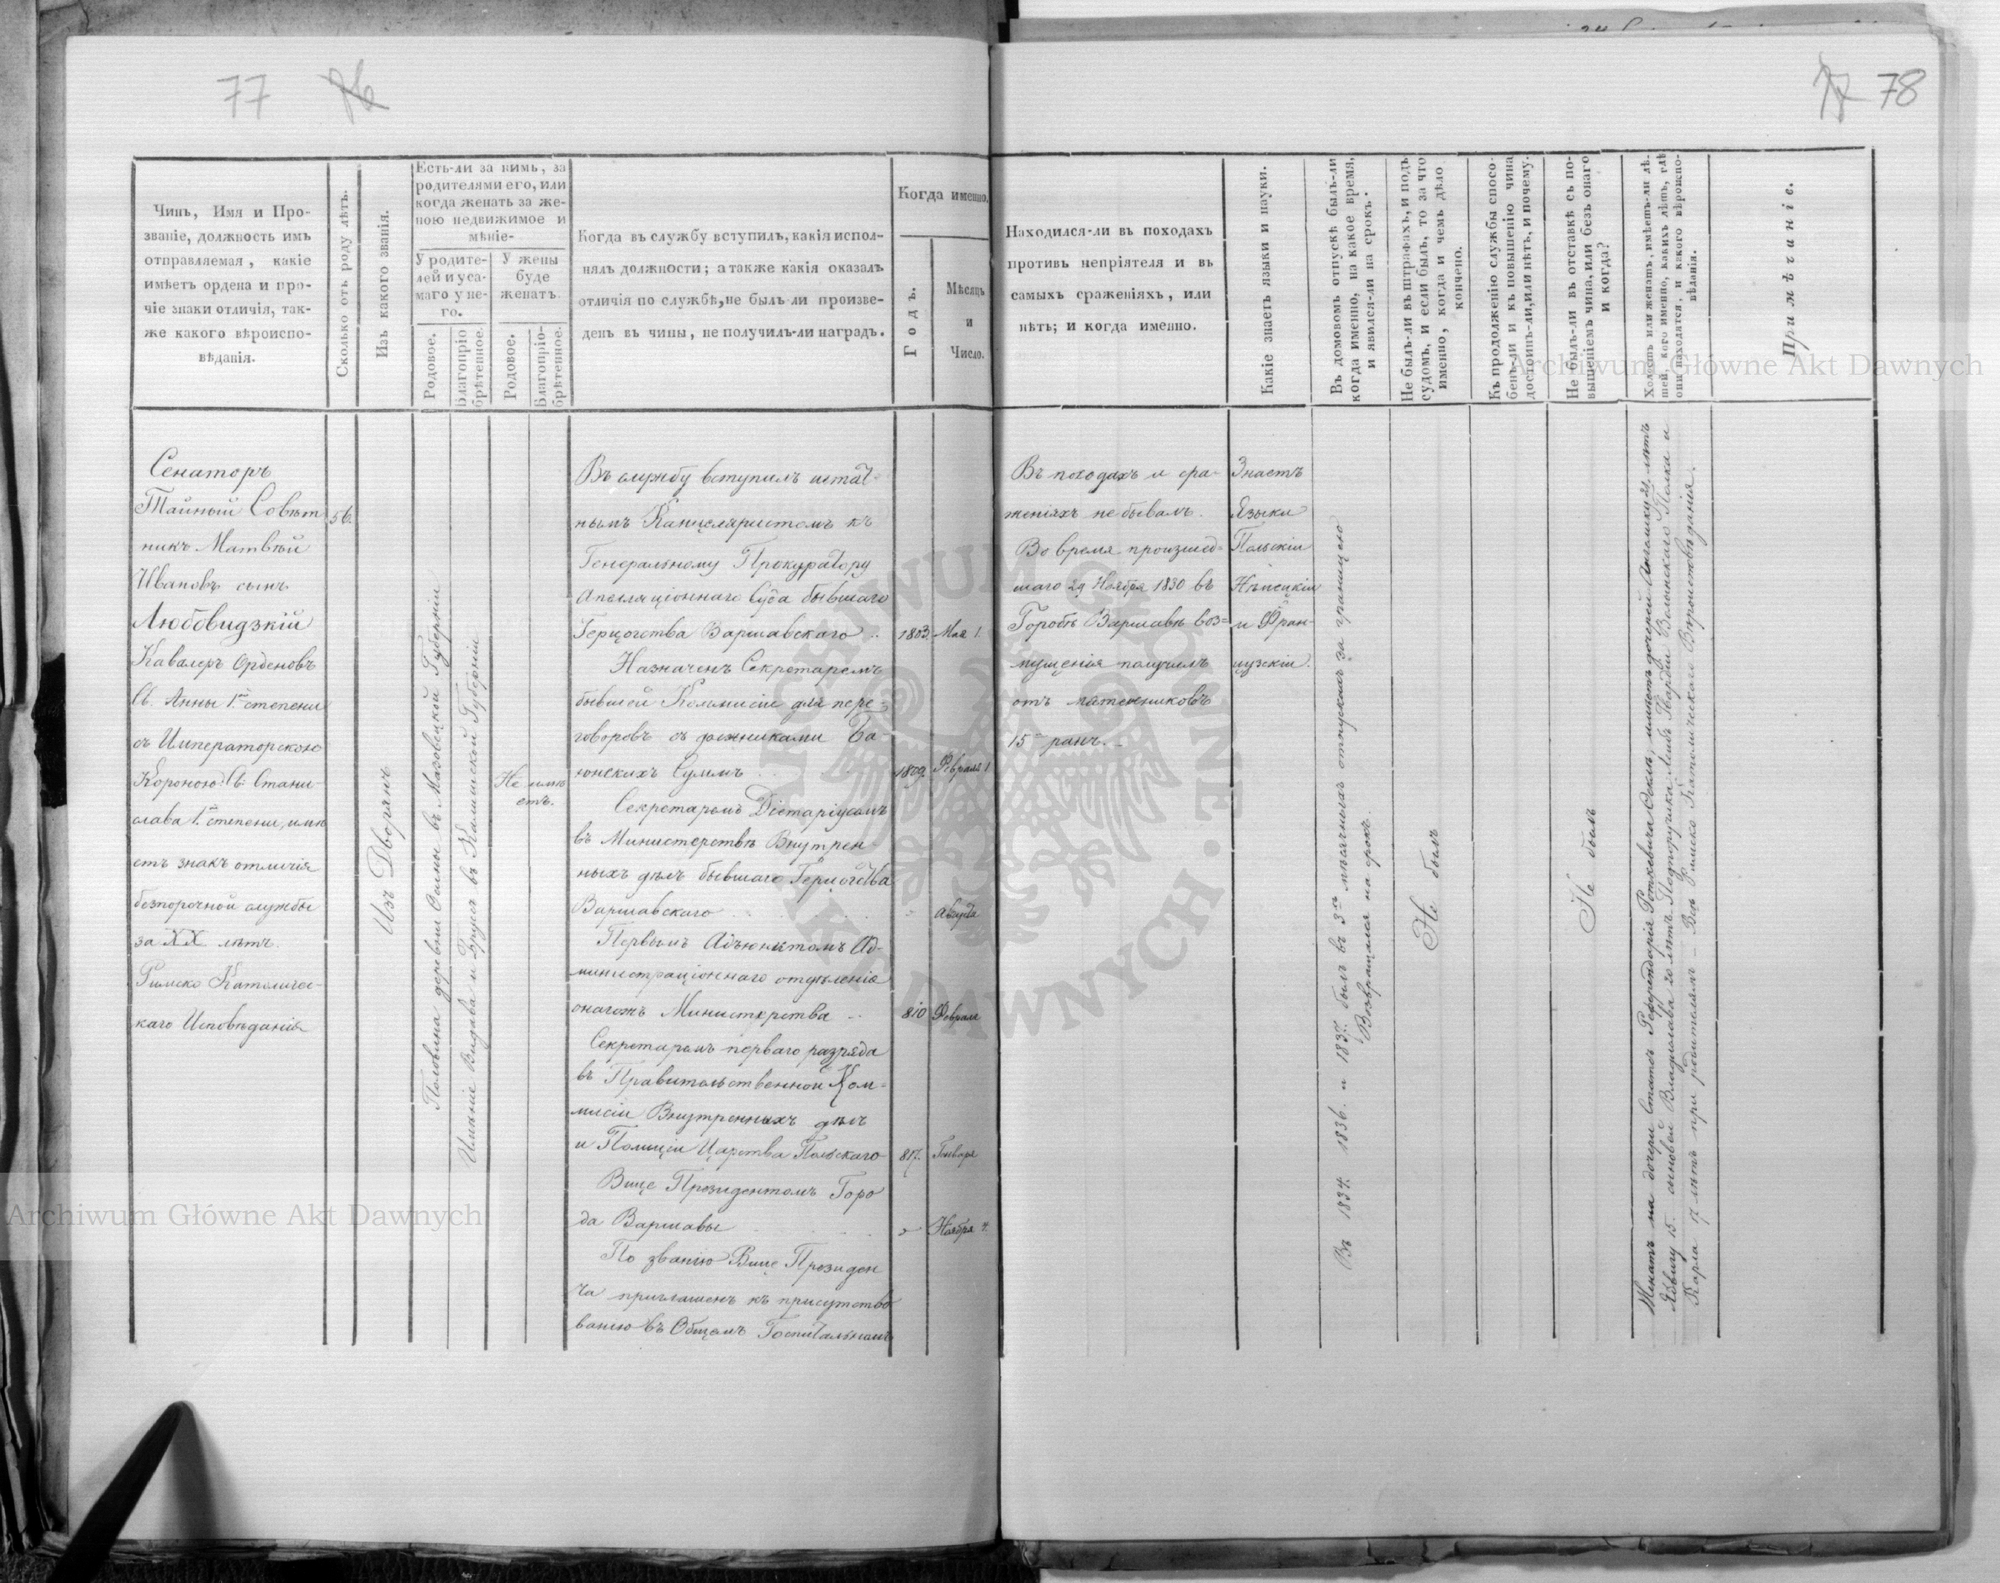 77 76
77 78
Чинъ, Имя и Про-
званіе, должность имъ
отправляемая, какіе
имѣетъ ордена и про-
чіе знаки отличія, так-
же какого вѣроиспо-
вѣданія.
Сколько отъ роду лѣтъ.
Изъ какого званія.
Есть-ли за нимъ, за
родителями его, или
когда женатъ за же-
ною недвижимое и
мѣніе-
У родите-
лей и уса-
маго у не-
го.
У жены
буде
женатъ.
Родовое.
Благопріо-
брѣтенное.
Родовое.
Благопріо-
брѣтенное.
Когда въ службу вступилъ, какія испол-
нялъ должности; а также какія оказалъ
отличія по службѣ, не былъ-ли произве-
денъ въ чины, не получилъ-ли наградъ.
Когда именно.
Годъ.
Мѣсяцъ
и
Число.
Находился-ли въ походахъ
противъ непріятеля и въ
самыхъ сраженіяхъ, или
нѣтъ; и когда именно.
Какіе знаетъ языки и науки.
Въ домовомъ отпускѣ былъ-ли
когда именно, на какое время,
и явился-ли на срокъ.
Не былъ-ли въ штрафахъ, и подъ
судомъ, и если былъ, то за что
именно, когда и чемъ дѣло
кончено.
Къ продолженію службы спосо-
бенъ-ли и къ повышенію чина
достоинъ-ли, или нѣтъ, и почему.
Не былъ-ли въ отставкѣ съ по-
вышеніемъ чина, или безъ онаго
и когда?
Холостъ или женатъ, имѣетъ-ли дѣ-
тей, кого именно, какихъ лѣтъ, гдѣ
они находятся, и какого вѣроиспо-
вѣданія.
Примѣчаніе.
Сенаторъ
Тайный Совѣт
никъ Матвѣй
Ивановъ сынъ
Любовидзкій
Кавалеръ Орденовъ
Св. Анны 1ой степени
съ Императорскою
Короною: Св: Стани-
слава 1ой степени, имѣ
етъ знакъ отличія
безпорочной службы
за XX лѣтъ.
Римско Католичес-
каго Исповѣданія
56.
Изъ Дворянъ
Половина деревни Санны въ Мазовецкой Губерніи
Имѣніе Видава и другое въ Калишской Губерніи
Не имѣ
етъ.
Въ службу вступилъ штат-
нымъ Канцеляристомъ къ
Генеральному Прокуратору
Апелляціоннаго Суда бывшаго
Герцогства Варшавскаго 1803. Мая 1.
Назначенъ Секретаремъ
бывшей Коммисіи для пере-
говоровъ съ должниками Ба-
іонскихъ Суммъ 1809. Февраля 1
Секретаремъ Діетаріусомъ
въ Министерствѣ Внутрен
ныхъ дѣлъ бывшаго Герцогства
Варшавскаго " Августа
Первымъ Адъюнктомъ Ад-
министраціоннаго отдѣленія
онагожъ Министерства 810 Февраля
Секретаремъ перваго разряда
въ Правительственной Ком-
мисіи Внутренныхъ дѣлъ
и Полиціи Царства Польскаго 817. Января
Вице Президентомъ Горо
да Варшавы " Ноября 4.
По званію Вице Президен
та приглашенъ къ присутство
ванію въ Общемъ Госпитальномъ
Въ походахъ и сра-
женіяхъ не бывалъ.
Во время произшед-
шаго 29 Ноября 1830 въ
Городѣ Варшавѣ воз-
мущенія получилъ
отъ мятежниковъ
15ть ранъ.
Знаетъ
Языки
Польскій
Нѣмецкій
и Фран-
цузскій.
Въ 1834. 1836. и 1837. былъ въ 3хъ мѣсячныхъ отпускахъ за границею
Возвращался на срокъ
Не былъ
Не былъ
Женатъ на дочери Статсъ Референдарія Роткевича Феклѣ, имѣетъ дочерей Ангелику 21. лѣтъ
Ядвигу 15. сыновей Владислава 20 лѣтъ Подпоручика Лейбъ Гвардіи Волынскаго Полка и
Карла 17 лѣтъ при родителяхъ — Всѣ Римско Католическаго Вѣроисповѣданія.
Archiwum Główne Akt Dawnych
Archiwum Główne Akt Dawnych
ARCHIWUM GŁÓWNE AKT DAWNYCH